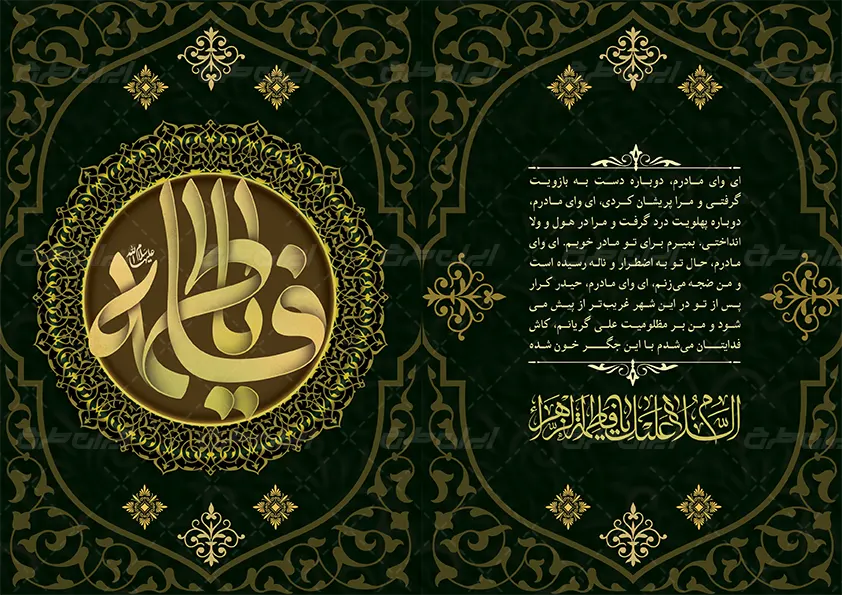 فاطمة
سلام الله علیها
ای وای مادرم، دوباره دست به بازویت
گرفتی و مرا پریشان کردی، ای وای مادرم،
دوباره پهلویت درد گرفت و مرا در هول و ولا
انداختی، بمیرم برای تو مادر خوبم. ای وای
مادرم، حال تو به اضطرار و ناله رسیده است
و من ضجه می‌زنم، ای وای مادرم، حیدر کرار
پس از تو در این شهر غریب‌تر از پیش می
شود و من بر مظلومیت علی گریانم، کاش
فدایتان می‌شدم با این جگر خون شده
السلام علیک یا فاطمة الزهراء
ایران طرح